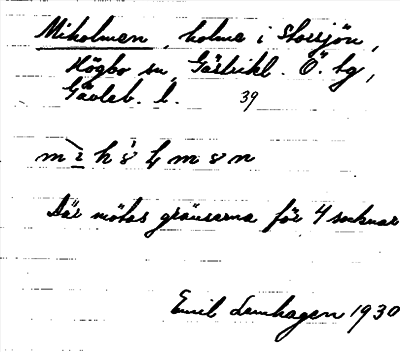 Miholmen, holme i Storsjön,
Högbo sn, Gästrikl. Ö. tg,
Gävleb. l. 39
Där mötas gränserna för 4 socknar
Emil Lemhagen 1930